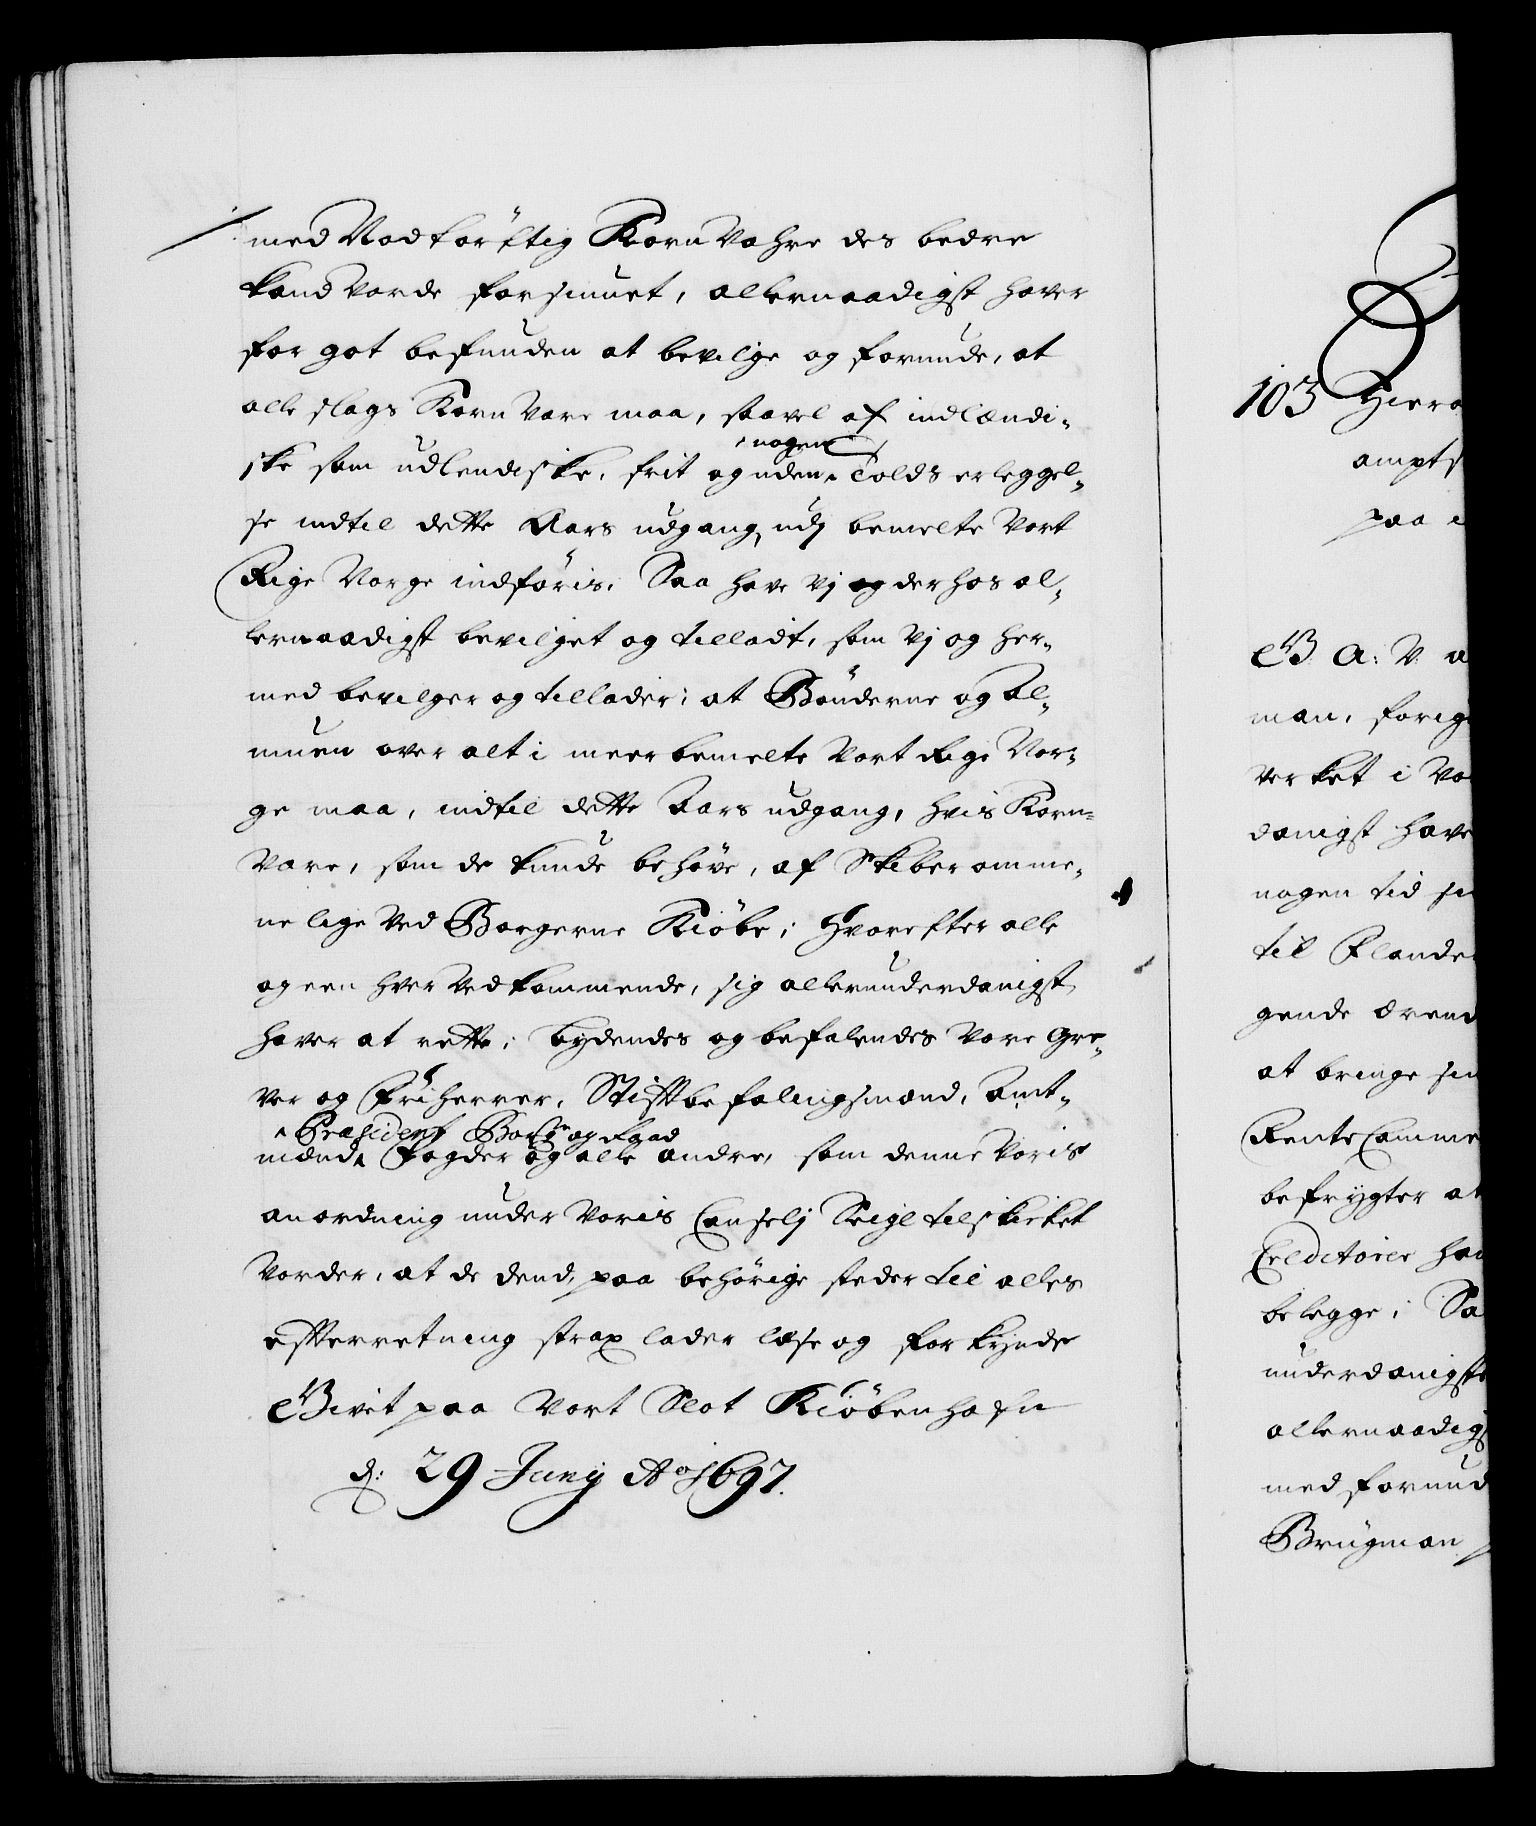 med Nodtörftig Korn Vahre des bedre
kand vorde forsiunet, allernaadigst haver
for got befunden at bevilge og forunde, at
alle slags Korn Vare maa, saavel af indlændi„
ske som udlendeske, frit og uden nogen Tolds erleggel„
se indtil dette Aars udgang, udj bemelte Vort
Rige Norge indföris. Saa have Vj og der hos al„
lernaadigst bevilget og tilladt, som Vj og her„
med bevilger og tillader; at Bönderne og Al„
muen over alt i meerbemelte Vort Rige Nor„
ge maa, indtil dette Aars udgang, hvis Korn„
Vare, som de kunde behöve, af Skiberomme„
ne lige ved Borgerne Kiöbe; Hvorefter alle
og een hver vedkommende, sig allerunderdanigst
haver at rette; bydendes og befalendes Vore Gre„
ver og Friherrer, Stiftbefalingsmænd, Amt„
mænd, Præsident Borge og Raad
Fogder og alle andre, som denne Voris
anordning under Voris Canselj Seigl tilskicket
Vorder, at de dend, paa behörige steder til alles
efterretning strax lader læse og forkynde
Givet paa Vort Slot Kiöbenhafn
d: 29 Junij Ao 1697.
103 Hiero
ampts
paa
G. A: V.
man, forig
verket i
danigst have
nogen tid
til Flander
gende ærend
at bringe
Rente Camme
befrygter at
Creditorer
belegge; Sa
underdanigste
allernaadigs
med forund
Brügman